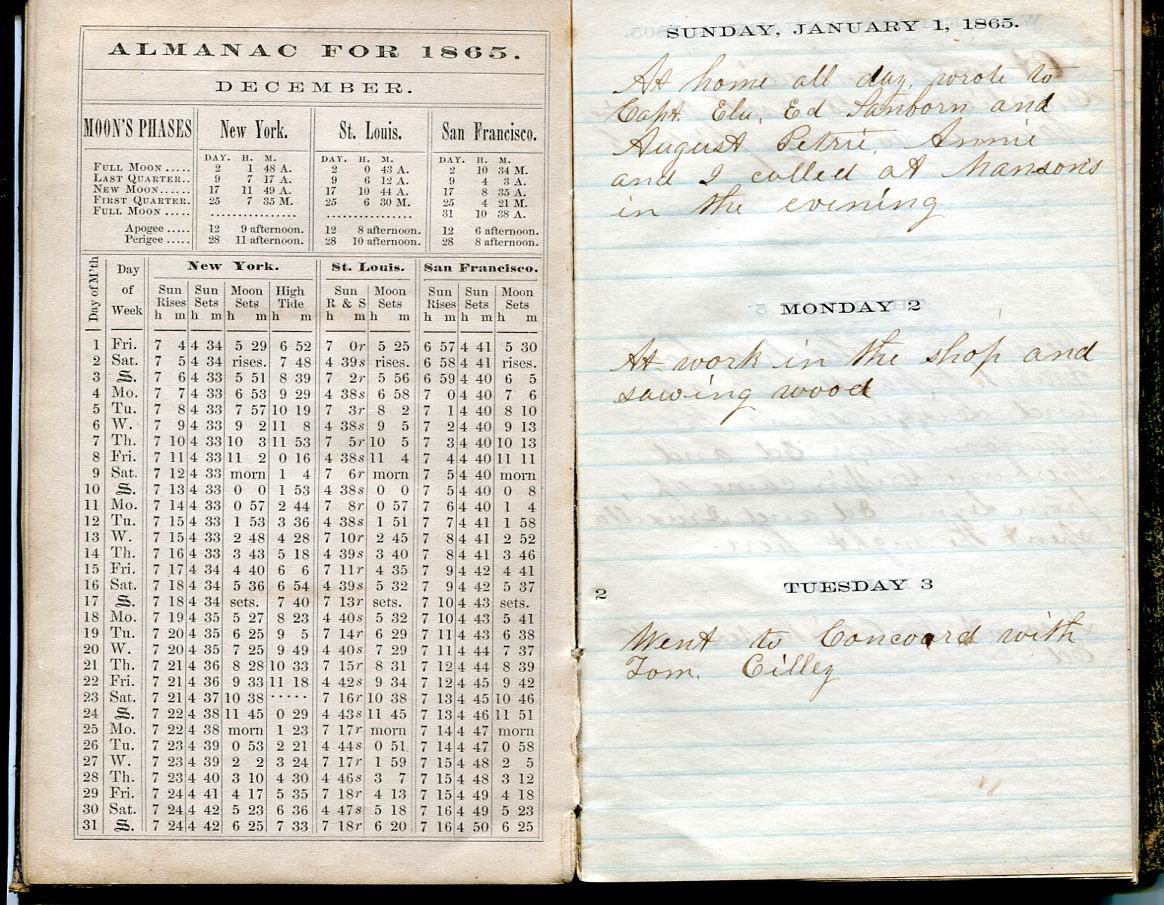 ALMANAC FOR 1865.
DECEMBER.
MOON'S PHASES New York. St. Louis. San Francisco.
DAY. H. M. DAY. H. M. DAY. H. M.
FULL MOON ..... 2 1 48 A. 2 0 43 A. 2 10 34 M.
LAST QUARTER. 9 7 17 A. 9 6 12 A. 9 4 3 A.
NEW MOON...... 17 11 49 A. 17 10 44 A. 17 8 35 A.
FIRST QUARTER. 25 7 35 M. 25 6 30 M. 25 4 21 M.
FULL MOON ..... ................ ................ 31 10 38 A.
Apogee ..... 12 9 afternoon. 12 8 afternoon. 12 6 afternoon.
Perigee ..... 28 11 afternoon. 28 10 afternoon. 28 8 afternoon.
Day of M'th Day of Week New York. St. Louis. San Francisco.
Sun Rises Sun Sets Moon Sets High Tide Sun R & S Moon Sets Sun Rises Sun Sets Moon Sets
h m h m h m h m h m h m h m h m h m
1 Fri. 7 4 4 34 5 29 6 52 7 0r 5 25 6 57 4 41 5 30
2 Sat. 7 5 4 34 rises. 7 48 4 39s rises. 6 58 4 41 rises.
3 S. 7 6 4 33 5 51 8 39 7 2r 5 56 6 59 4 40 6 5
4 Mo. 7 7 4 33 6 53 9 29 4 38s 6 58 7 0 4 40 7 6
5 Tu. 7 8 4 33 7 57 10 19 7 3r 8 2 7 1 4 40 8 10
6 W. 7 9 4 33 9 2 11 8 4 38s 9 5 7 2 4 40 9 13
7 Th. 7 10 4 33 10 3 11 53 7 5r 10 5 7 3 4 40 10 13
8 Fri. 7 11 4 33 11 2 0 16 4 38s 11 4 7 4 4 40 11 11
9 Sat. 7 12 4 33 morn 1 4 7 6r morn 7 5 4 40 morn
10 S. 7 13 4 33 0 0 1 53 4 38s 0 0 7 5 4 40 0 8
11 Mo. 7 14 4 33 0 57 2 44 7 8r 0 57 7 6 4 40 1 4
12 Tu. 7 15 4 33 1 53 3 36 4 38s 1 51 7 7 4 41 1 58
13 W. 7 15 4 33 2 48 4 28 7 10r 2 45 7 8 4 41 2 52
14 Th. 7 16 4 33 3 43 5 18 4 39s 3 40 7 8 4 41 3 46
15 Fri. 7 17 4 34 4 40 6 6 7 11r 4 35 7 9 4 42 4 41
16 Sat. 7 18 4 34 5 36 6 54 4 39s 5 32 7 9 4 42 5 37
17 S. 7 18 4 34 sets. 7 40 7 13r sets. 7 10 4 43 sets.
18 Mo. 7 19 4 35 5 27 8 23 4 40s 5 32 7 10 4 43 5 41
19 Tu. 7 20 4 35 6 25 9 5 7 14r 6 29 7 11 4 43 6 38
20 W. 7 20 4 35 7 25 9 49 4 40s 7 29 7 11 4 44 7 37
21 Th. 7 21 4 36 8 28 10 33 7 15r 8 31 7 12 4 44 8 39
22 Fri. 7 21 4 36 9 33 11 18 4 42s 9 34 7 12 4 45 9 42
23 Sat. 7 21 4 37 10 38 ..... 7 16r 10 38 7 13 4 45 10 46
24 S. 7 22 4 38 11 45 0 29 4 43s 11 45 7 13 4 46 11 51
25 Mo. 7 22 4 38 morn 1 23 7 17r morn 7 14 4 47 morn
26 Tu. 7 23 4 39 0 53 2 21 4 44s 0 51 7 14 4 47 0 58
27 W. 7 23 4 39 2 2 3 24 7 17r 1 59 7 15 4 48 2 5
28 Th. 7 23 4 40 3 10 4 30 4 46s 3 7 7 15 4 48 3 12
29 Fri. 7 24 4 41 4 17 5 35 7 18r 4 13 7 15 4 49 4 18
30 Sat. 7 24 4 42 5 23 6 36 4 47s 5 18 7 16 4 49 5 23
31 S. 7 24 4 42 6 25 7 33 7 18r 6 20 7 16 4 50 6 25
SUNDAY, JANUARY 1, 1865.
At home all day, wrote to
Capt. Ela, Ed Sanborn and
August Petrie. Annie
and I called at Mansons
in the evening
MONDAY 2
At work in the shop and
sawing wood
2
TUESDAY 3
Went to Concoard with
Tom. Cilley